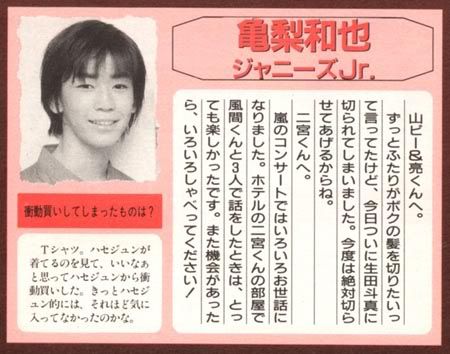 亀梨和也
ジャニーズJr.
山ピー&亮くんへ。
ずっとふたりがボクの髪を切りたいっ
て言ってたけど、今日ついに生田斗真に
切られてしまいました。今度は絶対切ら
せてあげるからね。
二宮くんへ。
嵐のコンサートではいろいろお世話に
なりました。ホテルの二宮くんの部屋で
風間くんと3人で話をしたときは、とっ
ても楽しかったです。また機会があった
ら、いろいろしゃべってください!
衝動買いしてしまったものは?
Tシャツ。ハセジュンが
着てるのを見て、いいなぁ
と思ってハセジュンから衝
動買いした。きっとハセジ
ュン的には、それほど気に
入ってなかったのかな。